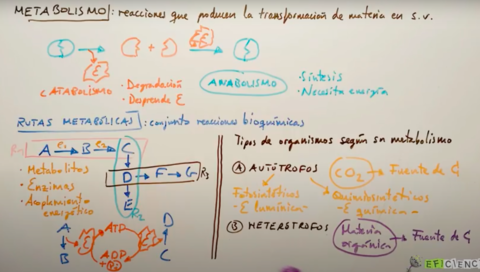 METABOLISMO: reacciones que producen la transformación de materia en s.v.
+
E
E
CATABOLISMO
· Degradación
· Desprende E
ANABOLISMO
· Síntesis
· Necesita energía
RUTAS METABÓLICAS: conjunto reacciones bioquímicas
R1
A e1 B e2 C
D F G R3
E
R2
· Metabolitos
· Enzimas
· Acoplamiento energético
A
B
E
ATP
ADP
+Pi
E
D
C
Tipos de organismos según su metabolismo
A AUTÓTROFOS
CO2 Fuente de C
Fotosintéticos
- E lumínica -
Quimiosintéticos
- E química -
B HETERÓTROFOS
Materia orgánica Fuente de C
EFICIENC